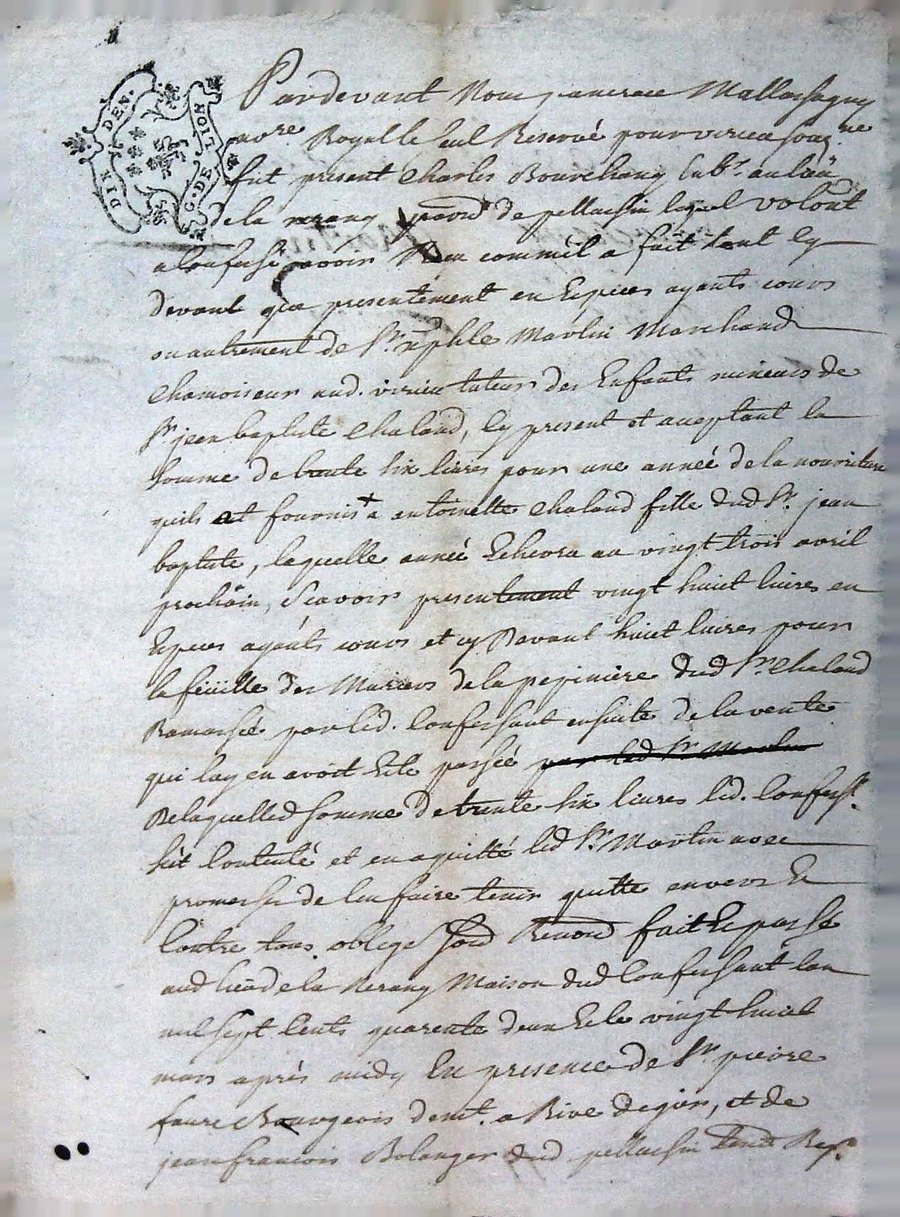 DIX DEN.
G. DE
Pardevant Nous
Royal le seul Reservé pour virieu
fut present Charles Bourchany
de la de pellussin lequel volont
a confessé avoir Reçu comme il a fait tant cy
devant que presentement en Espéces ayants cours
ou autrement de Sr. Martin Marchand
Chamoiseur aud. virieu tuteur des Enfants mineurs de
Sr. jean baptiste chaland, cy present et aceptant la
somme de trente six livres pour une année de la nouriture
quils at fournis a antoinette chaland fille dud Sr. jean
baptiste, laquelle année Echevra au vingt trois avril
prochain, Scavoir presentement vingt huict livres en
Espéces ayants cours et cy Devant huict livres pour
la feüille des Muriers de la pepiniere dud Sr. chaland
Ramassée par led. Confessant ensuite de la vente
qui luy en avoit Eté passée par led Sr. Martin
De laquelled somme de trente six livres led. Confesst.
s'et Contenté et en aquitté led Sr. Martin avec
promesse de l'en faire tenir quitte envers Et
Contre tous, oblige Renond fait Et passé
aud lieu de la Merany Maison dud Confessant l'an
mil sept cents quarente deux Et le vingt huict
mars aprés midy En presence de Sr. pierre
faure Bourgeois demt. a Rive degier, et de
jean francois Bolanger dud pellussin